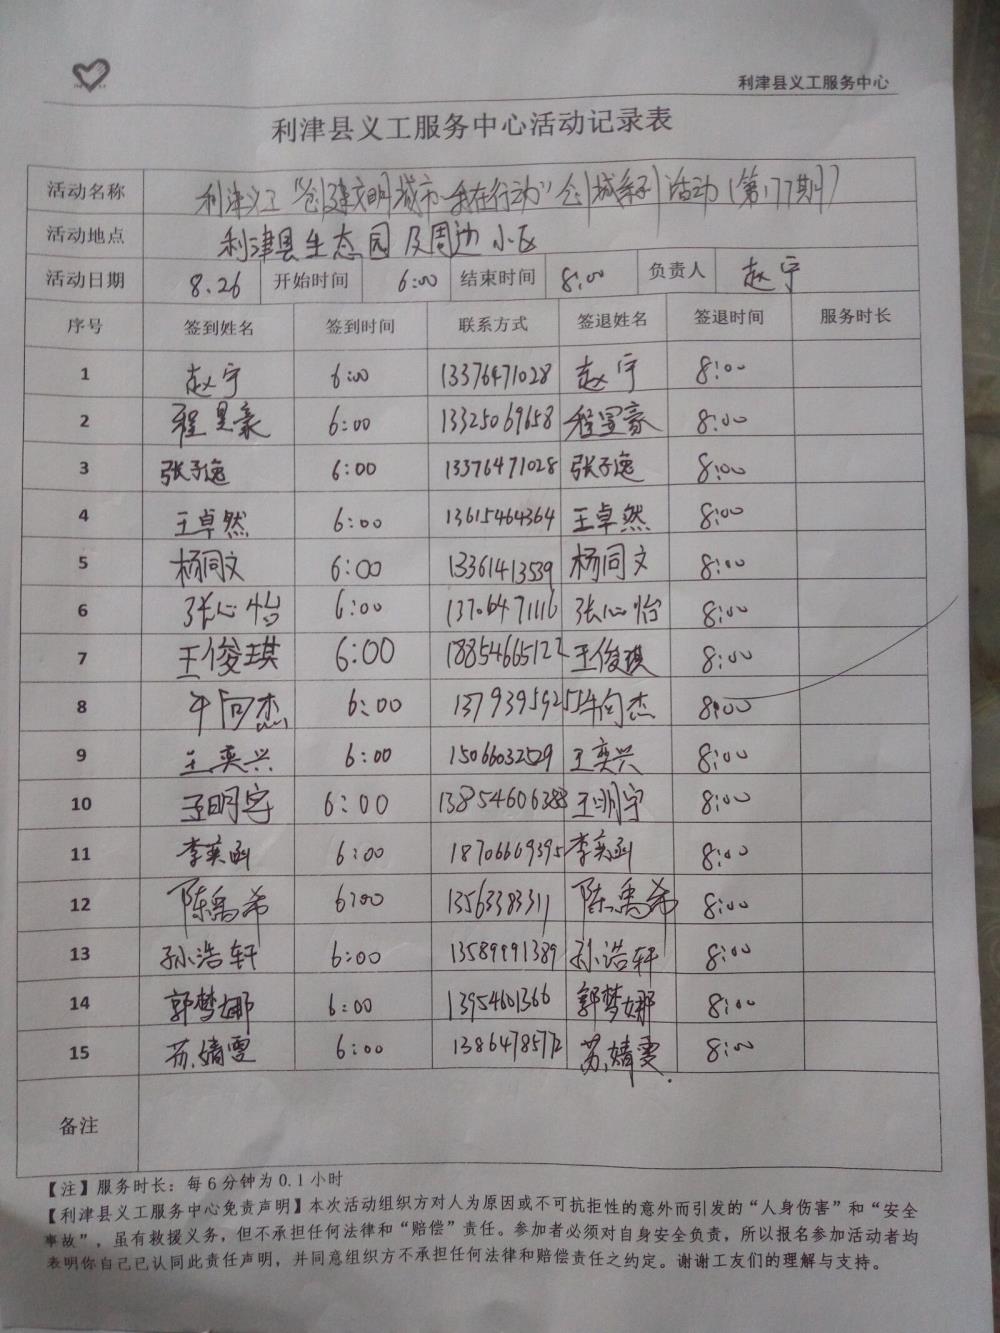 利津县义工服务中心
利津县义工服务中心活动记录表
活动名称 利津义工“创建文明城市·我在行动”创城系列活动(第177期)
活动地点 利津县生态园及周边小区
活动日期 8.26 开始时间 6:00 结束时间 8:00 负责人 赵宁
序号 签到姓名 签到时间 联系方式 签退姓名 签退时间 服务时长
1 赵宁 6:00 13376471028 赵宁 8:00
2 程昱豪 6:00 13325069658 程昱豪 8:00
3 张子逸 6:00 13376471028 张子逸 8:00
4 王卓然 6:00 13615464364 王卓然 8:00
5 杨同文 6:00 13361413539 杨同文 8:00
6 张心怡 6:00 13706471116 张心怡 8:00
7 王俊琪 6:00 18854665122 王俊琪 8:00
8 牛向杰 6:00 13793959251 牛向杰 8:00
9 王奕兴 6:00 15066032529 王奕兴 8:00
10 王明宇 6:00 13854606388 王明宇 8:00
11 李奕函 6:00 18706669395 李奕函 8:00
12 陈禹希 6:00 13563383311 陈禹希 8:00
13 孙浩轩 6:00 13589991389 孙浩轩 8:00
14 郭梦娜 6:00 13954601366 郭梦娜 8:00
15 苏婧雯 6:00 13864785772 苏婧雯 8:00
备注
【注】服务时长：每6分钟为0.1小时
【利津县义工服务中心免责声明】本次活动组织方对人为原因或不可抗拒性的意外而引发的“人身伤害”和“安全
事故”，虽有救援义务，但不承担任何法律和“赔偿”责任。参加者必须对自身安全负责，所以报名参加活动者均
表明你自己已认同此责任声明，并同意组织方不承担任何法律和赔偿责任之约定。谢谢工友们的理解与支持。